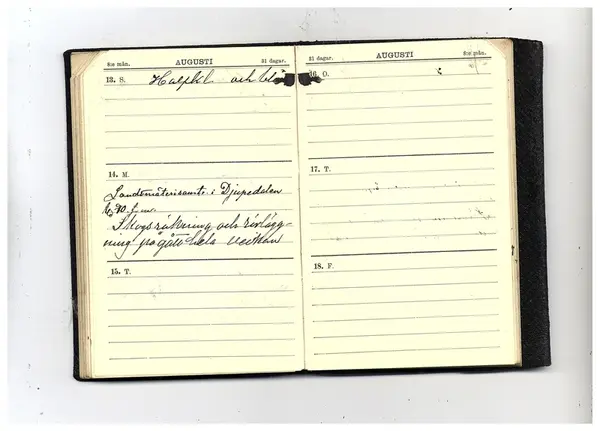 8:e mån. AUGUSTI 31 dagar.
13. S. Halphl. och
14. M.
Landtmäteriamte. i Djupedalen
kl. 10 f. m.
Skogsräkning och rörlägg-
ning pågått hela veckan
15. T.
31 dagar. AUGUSTI 8:e mån.
16. O.
17. T.
18. F.